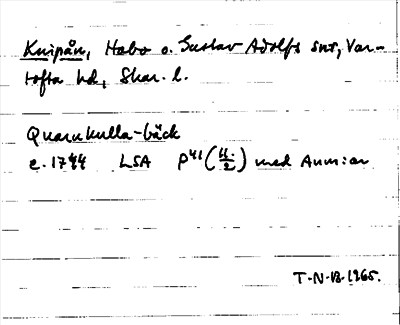 Knipån, Habo o. Gustav Adolfs snr, Var-
tofta hd, Skar. l.
Quarnkulla-bäck
e. 1744 LSA P41 (11/2) med Anm:ar
T-N-B-1965.